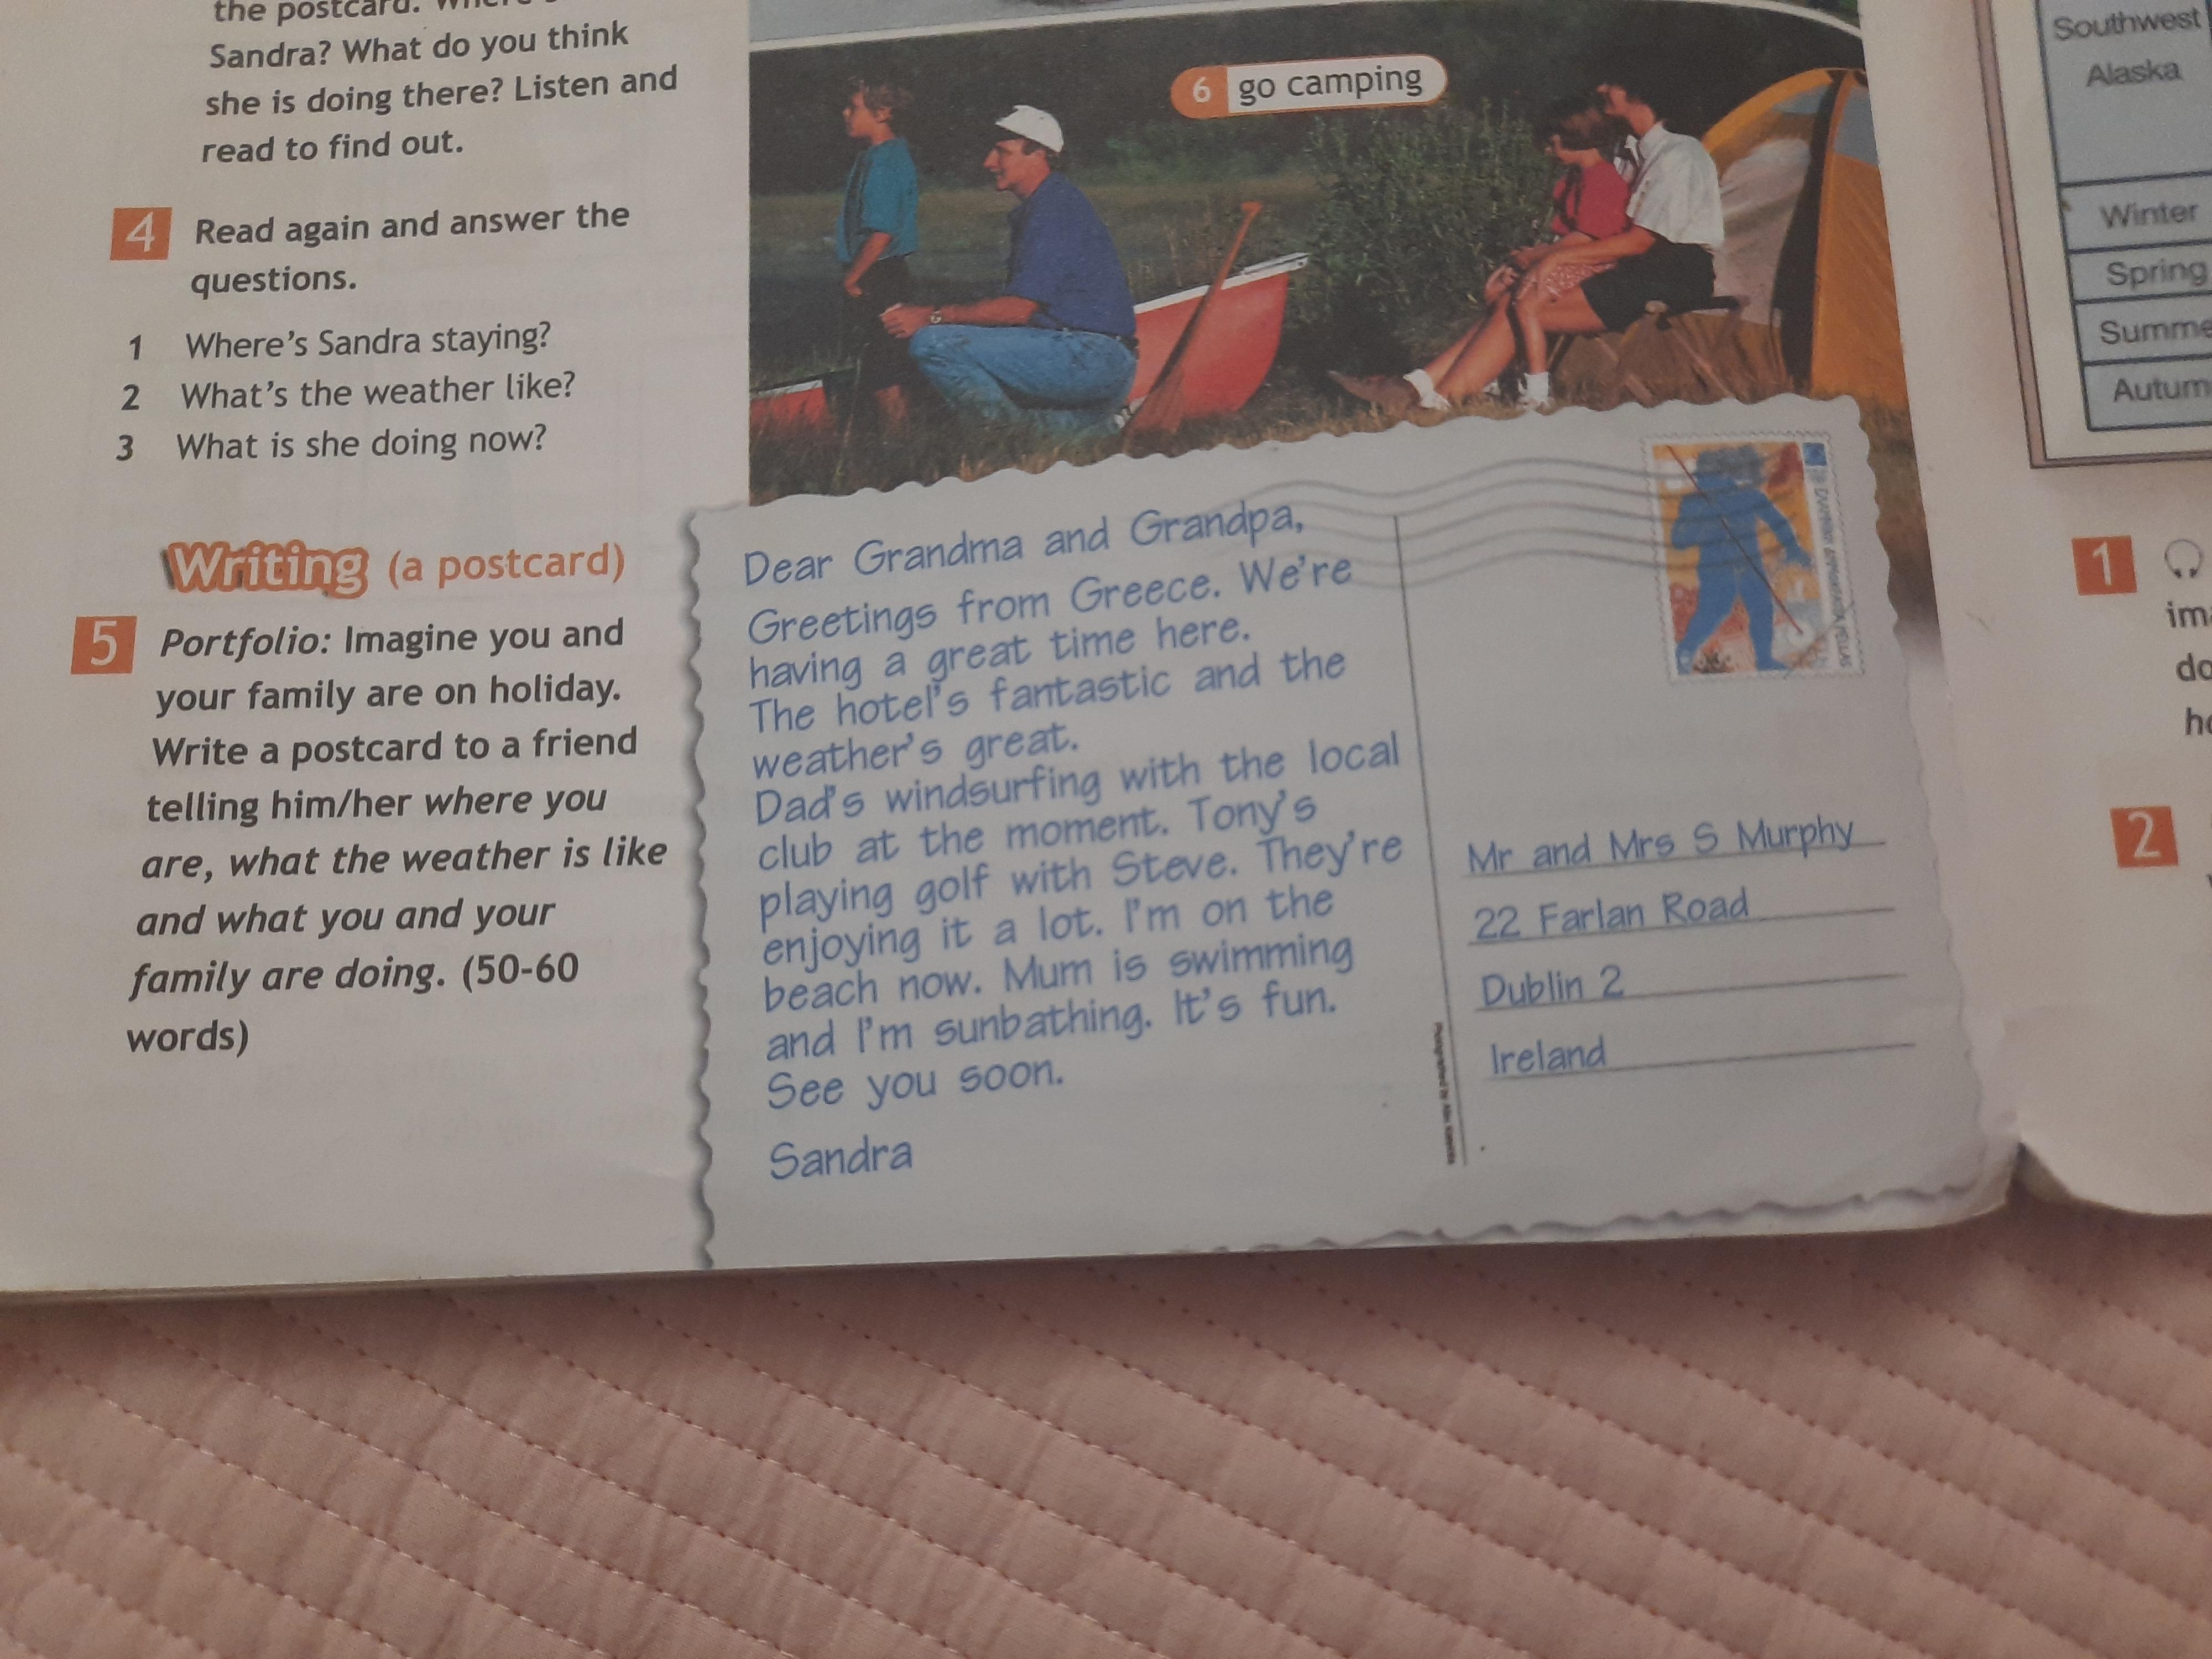 the postcard.
Sandra? What do you think
she is doing there? Listen and
read to find out.
4 Read again and answer the
questions.
1 Where's Sandra staying?
2 What's the weather like?
3 What is she doing now?
Writing (a postcard)
5 Portfolio: Imagine you and
your family are on holiday.
Write a postcard to a friend
telling him/her where you
are, what the weather is like
and what you and your
family are doing. (50-60
words)
6 go camping
Dear Grandma and Grandpa,
Greetings from Greece. We're
having a great time here.
The hotel's fantastic and the
weather's great.
Dad's windsurfing with the local
club at the moment. Tony's
playing golf with Steve. They're
enjoying it a lot. I'm on the
beach now. Mum is swimming
and I'm sunbathing. It's fun.
See you soon.
Sandra
Mr and Mrs S Murphy
22 Farlan Road
Dublin 2
Ireland
Southwest
Alaska
Winter
Spring
1
2